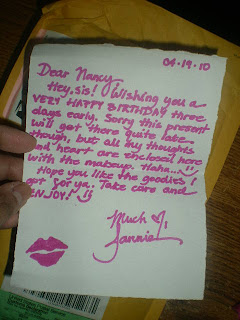 04-19-10
Dear Nancy,
Hey, sis! Wishing you a
VERY HAPPY BIRTHDAY three
days early. Sorry this present
will get there quite late
though, but all my thoughts
and heart are enclosed here
with the makeup. Haha...
Hope you like the goodies I
got for ya. Take care and
ENJOY!
Much
Jannie